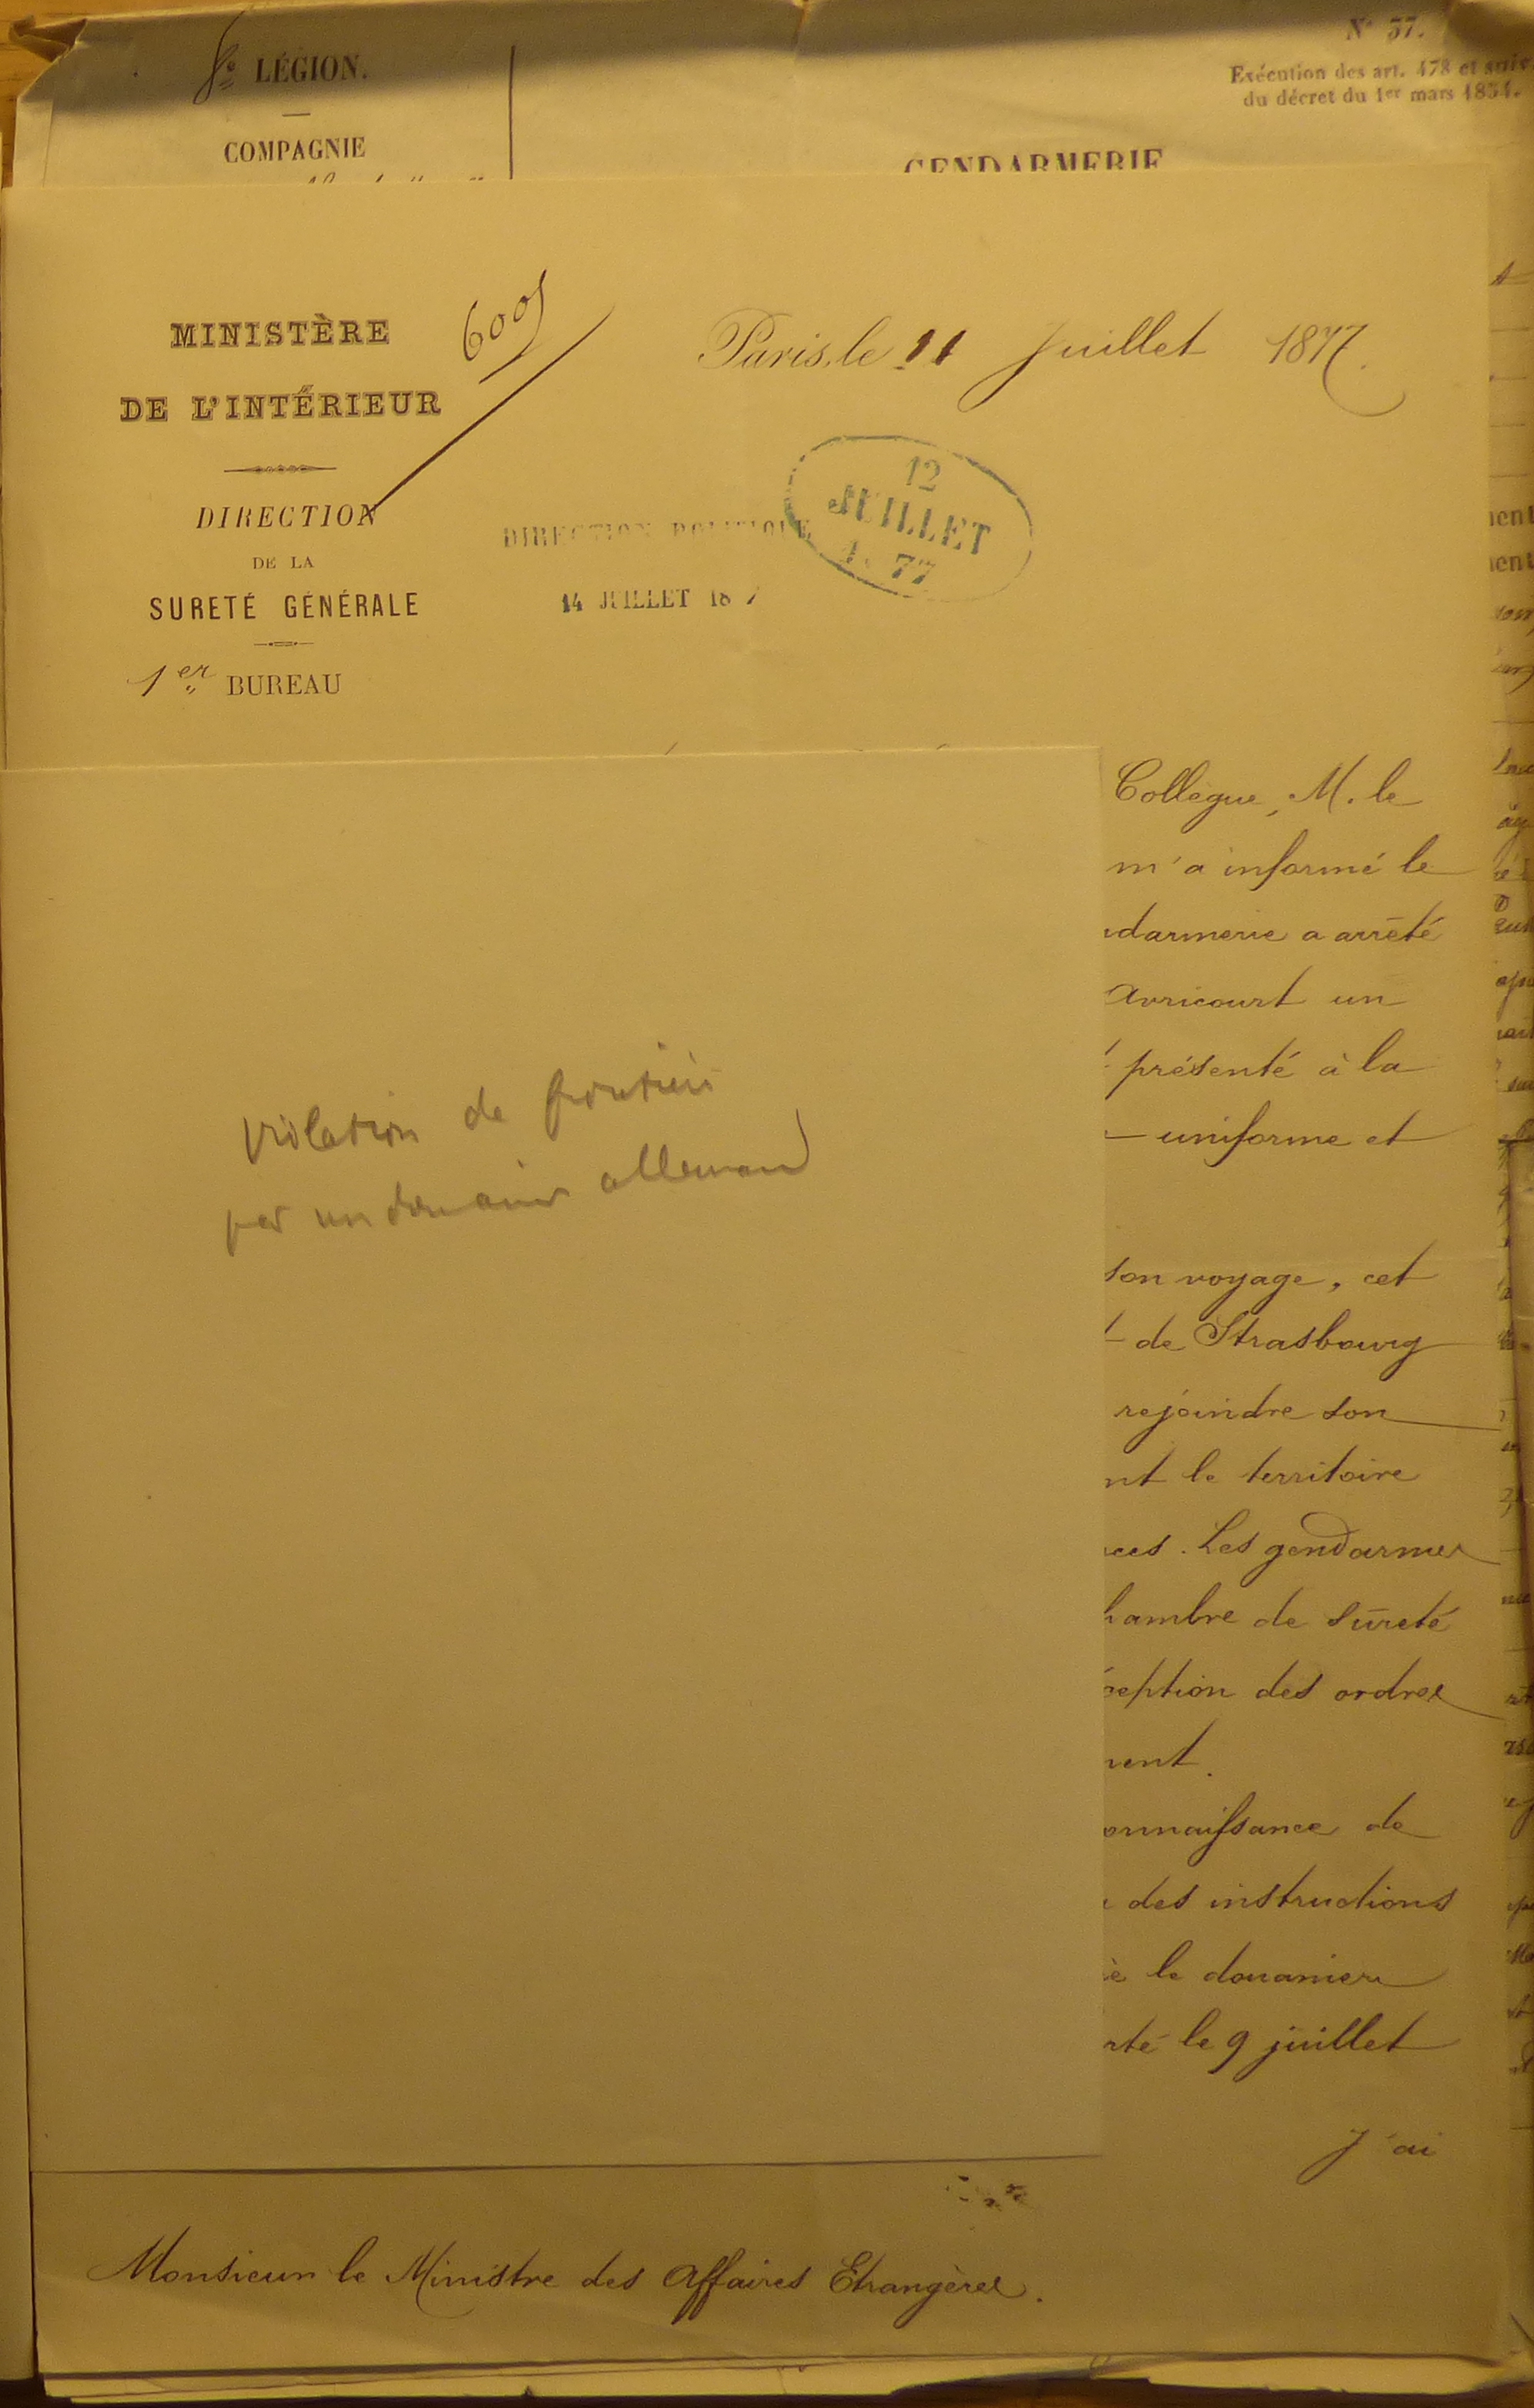 8e LÉGION.
COMPAGNIE
N° 37.
Exécution des art. 478 et suiv.
du décret du 1er mars 1854.
GENDARMERIE
MINISTÈRE
DE L'INTÉRIEUR
DIRECTION
DE LA
SURETÉ GÉNÉRALE
1er BUREAU
Paris, le 11 Juillet 1877.
12
JUILLET
1877
DIRECTION POLITIQUE
14 JUILLET 18
Collègue, M. le
m'a informé le
darmerie a arrêté
Avricourt un
présenté à la
uniforme et
son voyage, cet
de Strasbourg
rejoindre son
nt le territoire
ces. Les gendarmes
hambre de sûreté
ception des ordres
ment.
onnaissance de
des instructions
è le douanier
rté le 9 juillet
J'ai
violation de frontière
par un douanier allemand
Monsieur le Ministre des Affaires Etrangères.